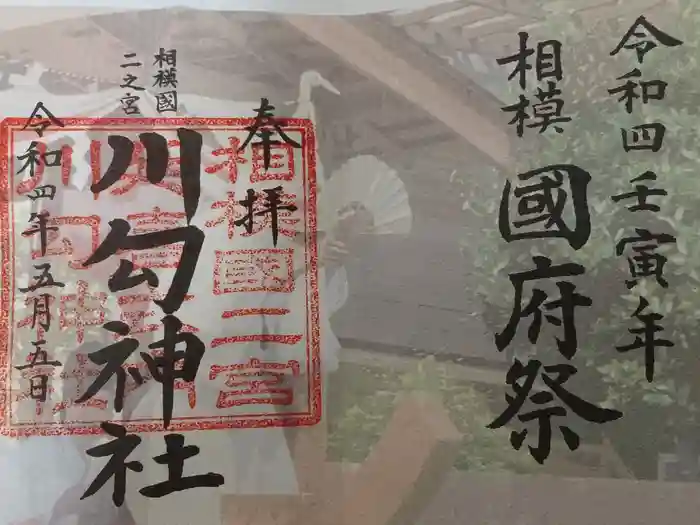 令和四壬寅年
相模
國府祭
奉拝
相模國
二之宮
川勾神社
令和四年五月五日
相模國二宮
川勾神社